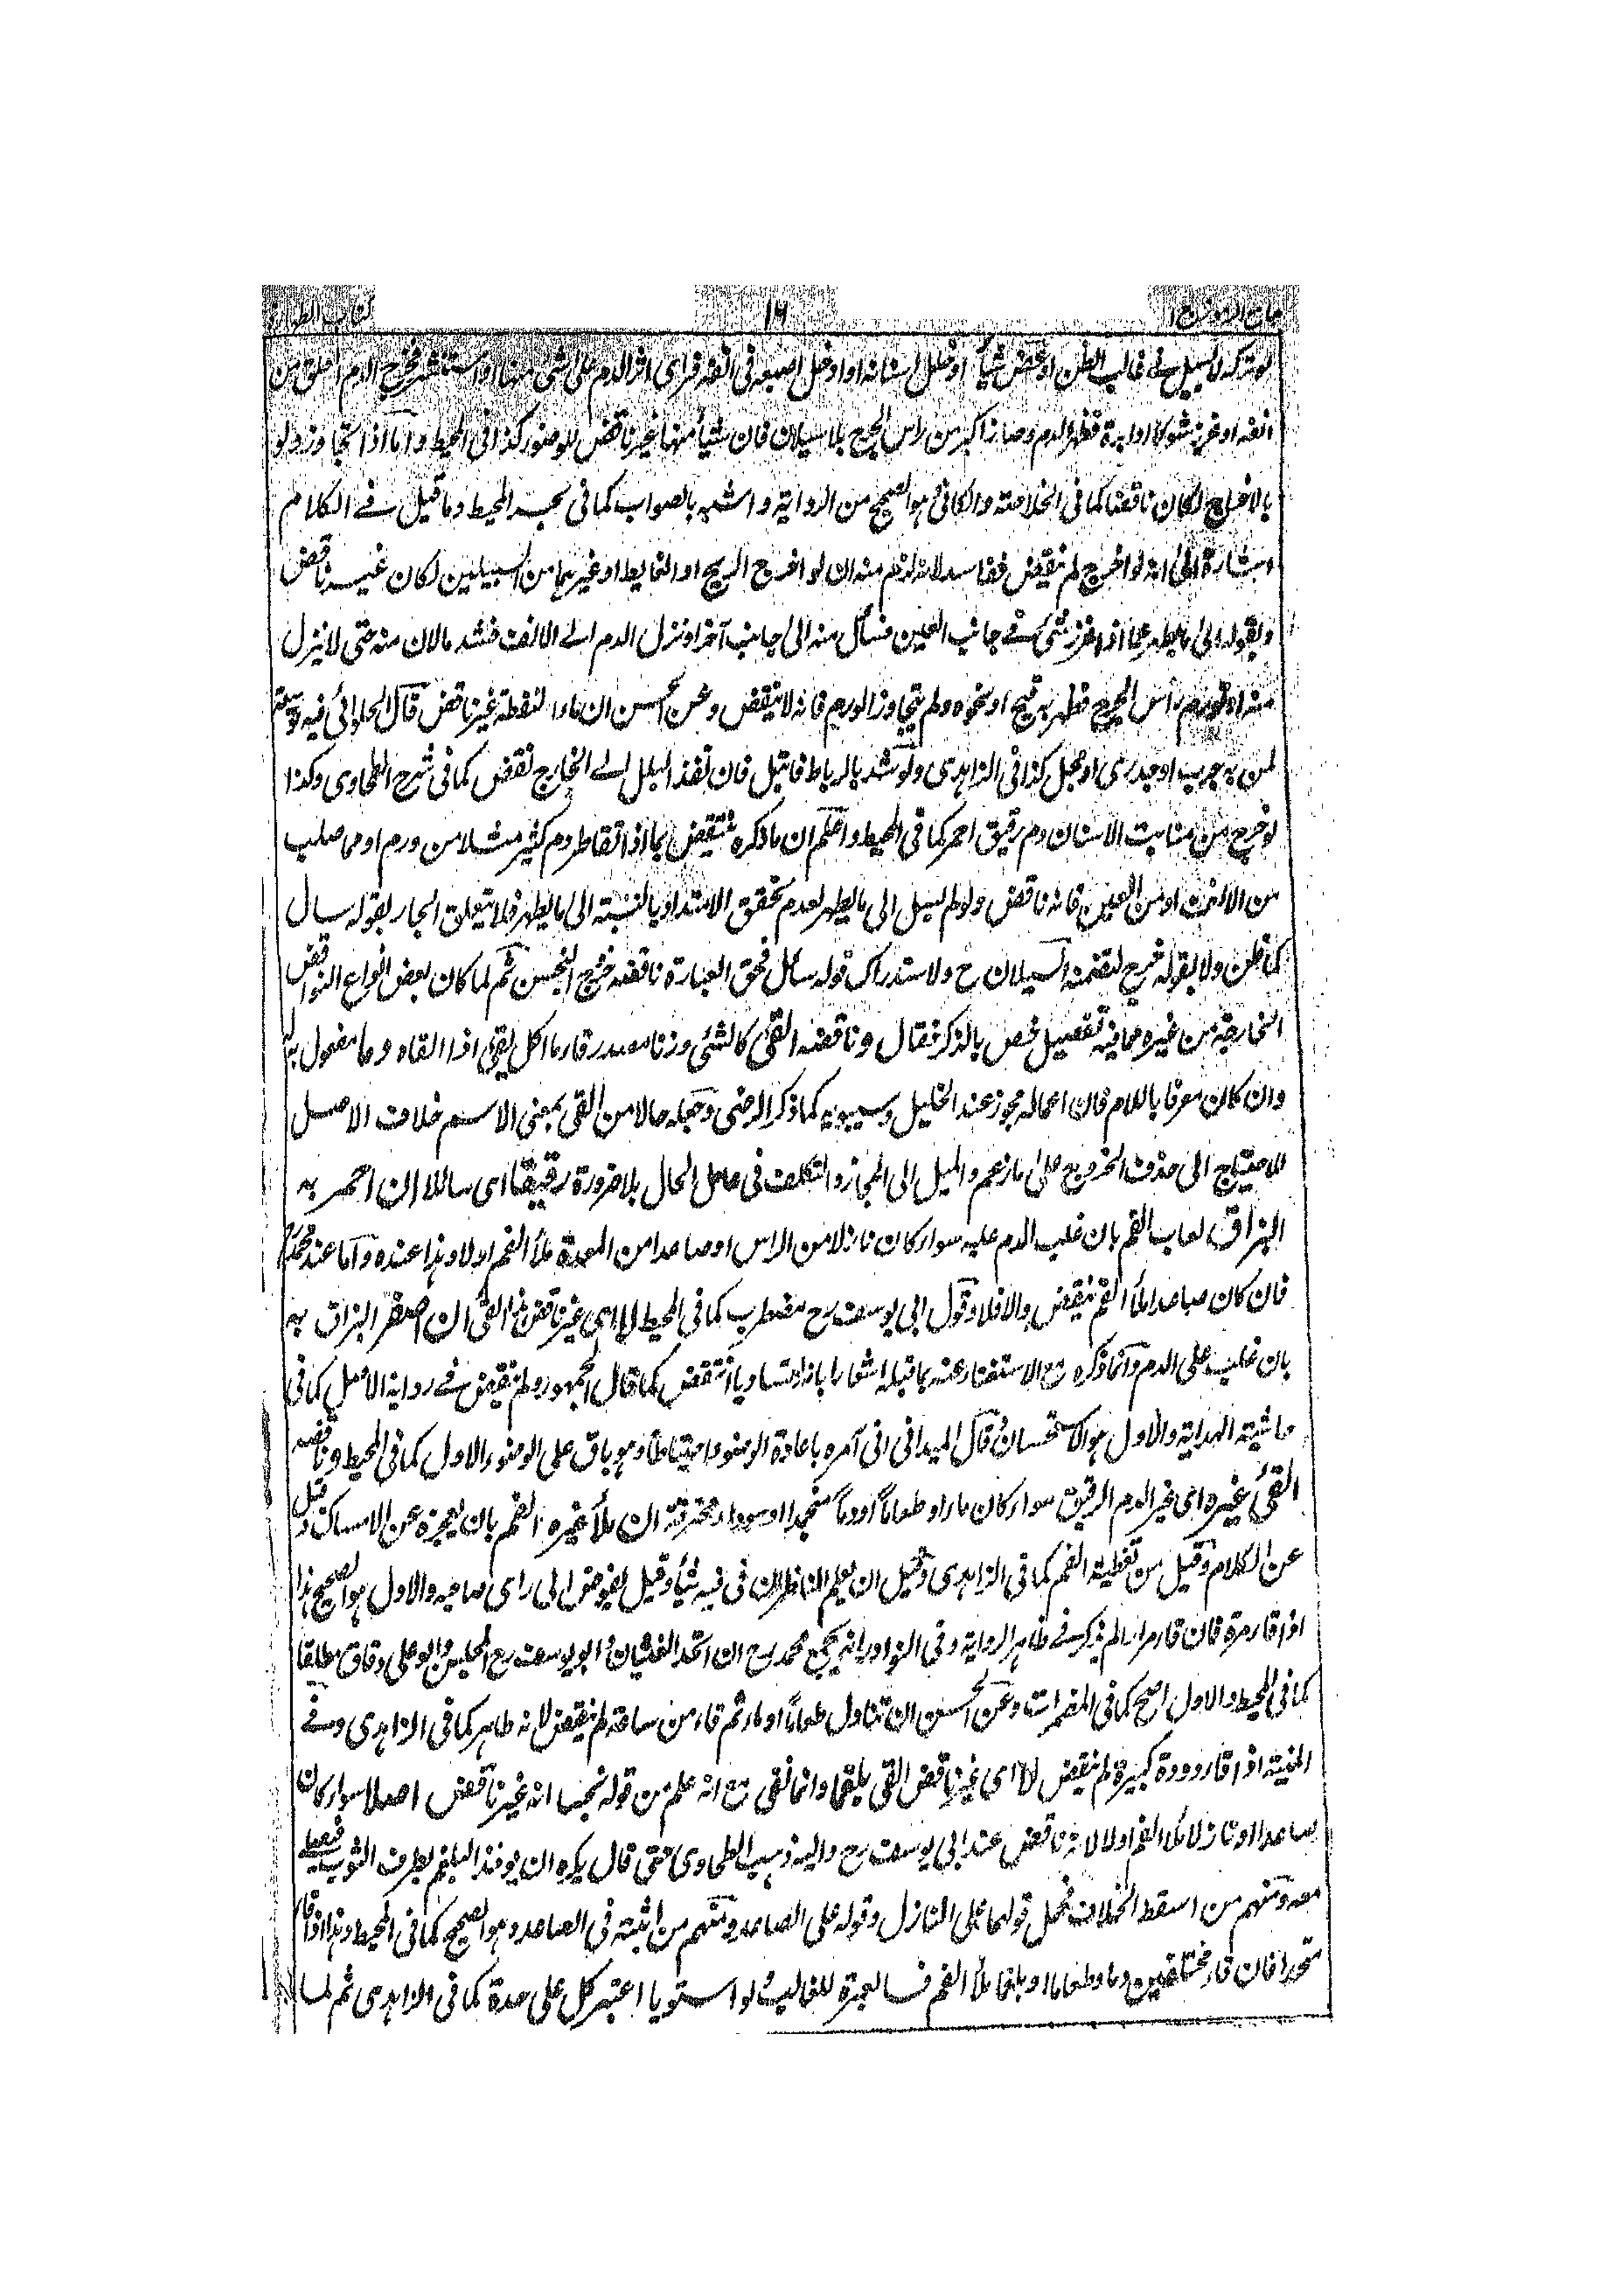 جامع الرموز ج ١ ١٦ كتاب الطهارة
لو تركه لا يسيل في غالب الظن او عض شيأ او خلل اسنانه او ادخل اصبعه في انفه فرأى اثر الدم على شئ منها او استنشر فخرج الدم العلق من
انفه او غرز شوكا او ابرة فظهر الدم وصار اكبر من راس الجرح بلا سيلان فان شيأ منها غير ناقض للوضوء كذا في المحيط واما اذا تجاوز ولو
بالاخراج لكان ناقضا كما في الخلاصة والكافي هو الصحيح من الرواية واشبه بالصواب كما في المحيط وما قيل في الكلام
اشارة الى انه لو اخرج لم ينقض ففاسد لانه لزم منه ان لو اخرج الريح او الغايط او غيرهما من السبيلين لكان غير ناقض
وبقوله الى ما يطهر عما اذا غرز شئ في جانب العين فسال منه الى جانب آخر او نزل الدم الى الانف فشد مالان منه حتى لا ينزل
منه او تورم رأس الجرح فظهر به قيح او نحوه ولم يتجاوز الورم فانه لا ينقض وعن الحسن ان ماء النفطة غير ناقض قال الحلوائي فيه توسعة
لمن به جرب او جدري او مجل كذا في الزاهدي ولو شد بالرباط فابتل فان نفذ البلل الى الخارج نقض كما في شرح الطحاوي وكذا
لو خرج من منابت الاسنان دم رقيق احمر كما في المحيط واعلم ان ما ذكره ينتقض بما اذا تقاطر دم كثير مثلا من ورم او مما صلب
من الانف او من العين فانه ناقض ولو لم يسل الى ما يطهر لعدم تحقق الابتداء بالنسبة الى ما يطهر فلا يتعلق الجار بقوله سال
كما ظن ولا بقوله خرج لتضمنه السيلان ح ولا ستدراك قوله سال فحق العبارة ناقضه خرج النجس ثم لما كان بعض انواع النواقض
الخارجة من غيره مما فيه تفصيل خص بالذكر فقال وناقضه القئ كالشئ وزنا مصدر قاء ما اكل يقئ اذا القاه وما مفعول به
وان كان معرفا باللام فان اعماله مجوز عند الخليل وسيبويه كما ذكر الرضي وجعله حالا من القئ بمعنى الاسم خلاف الاصل
للاحتياج الى حذف الخروج على ما زعم والميل الى المجاز والتكلف في عامل الحال بلا ضرورة رقيقا اى سائلا ان احمر به
البزاق لعاب الفم بان غلب الدم عليه سواء كان نازلا من الراس او صاعدا من المعدة ملأ الفم اولا وهذا عنده واما عند محمد
فان كان صاعدا ملأ الفم ينقض والا فلا وقول ابي يوسف رح مضطرب كما في المحيط لا اى غير ناقض هذا القئ ان اصفر البزاق به
بان غلب على الدم وانما ذكره مع الاستغناء عنه بما قبله اشعارا بانه ان تساويا انتقض كما قال الجمهور ولم ينقض في رواية الاصل كما في
حاشية الهداية والاول هو الاستحسان وقال الميداني اني آمره باعادة الوضوء احتياطا وهو باق على الوضوء الاول كما في المحيط وناقضه
القئ غيره اى غير الدم الرقيق سواء كان ماء او طعاما او دما منجمدا او سوداء محترقة ان ملأ غيره الفم بان يعجزه عن الامساك وقيل
عن الكلام وقيل من تغطية الفم كما في الزاهدي وقيل ان يعلم الناظر ان في فيه شيأ وقيل يفوض الى راى صاحبه والاول هو الصحيح هذا
اذا قاء مرة فان قاء مرارا لم يذكر في ظاهر الرواية وفي النوادر انه يجمع محمد رح ان اتحد الغثيان وابو يوسف رح المجلس وابو علي دقاق مطلقا
كما في المحيط والاول اصح كما في المضمرات وعن الحسن ان تناول طعاما او ماء ثم قاء من ساعته لم ينقض لانه طاهر كما في الزاهدي وفي
المنية اذا قاء دودة كبيرة لم ينقض لا اى غير ناقض القئ بلغما وانما نفى مع انه علم من قوله نجسا انه غير ناقض اصلا سواء كان
صاعدا او نازلا ملأ الفم اولا لانه ناقض عند ابي يوسف رح واليه ذهب الطحاوي حتى قال يكره ان يؤخذ البلغم بطرف الثوب فيصلي
معه ومنهم من اسقط الخلاف فحمل قولهما على النازل وقوله على الصاعد ومنهم من اثبته في الصاعد وهو الصحيح كما في المحيط وهذا اذا قاء
متحدا فان قاء مختلفين دما وطعاما او بلغما ملأ الفم فالعبرة للغالب ولو استويا اعتبر كل على حدة كما في الزاهدي ثم لما